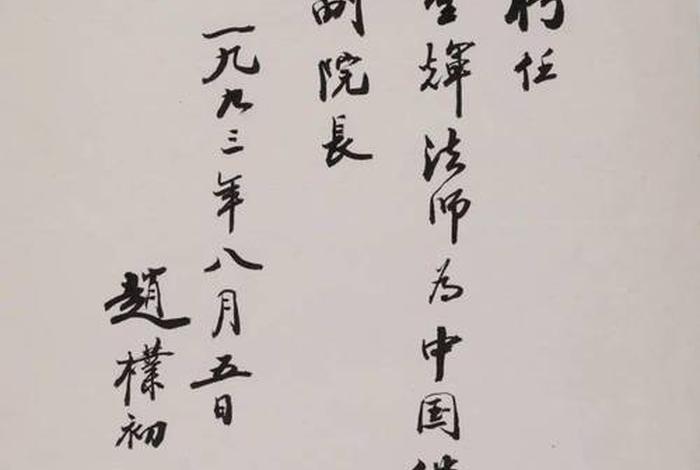 聘任
聖輝法师为中国佛
副院長
一九九三年八月五日
趙樸初